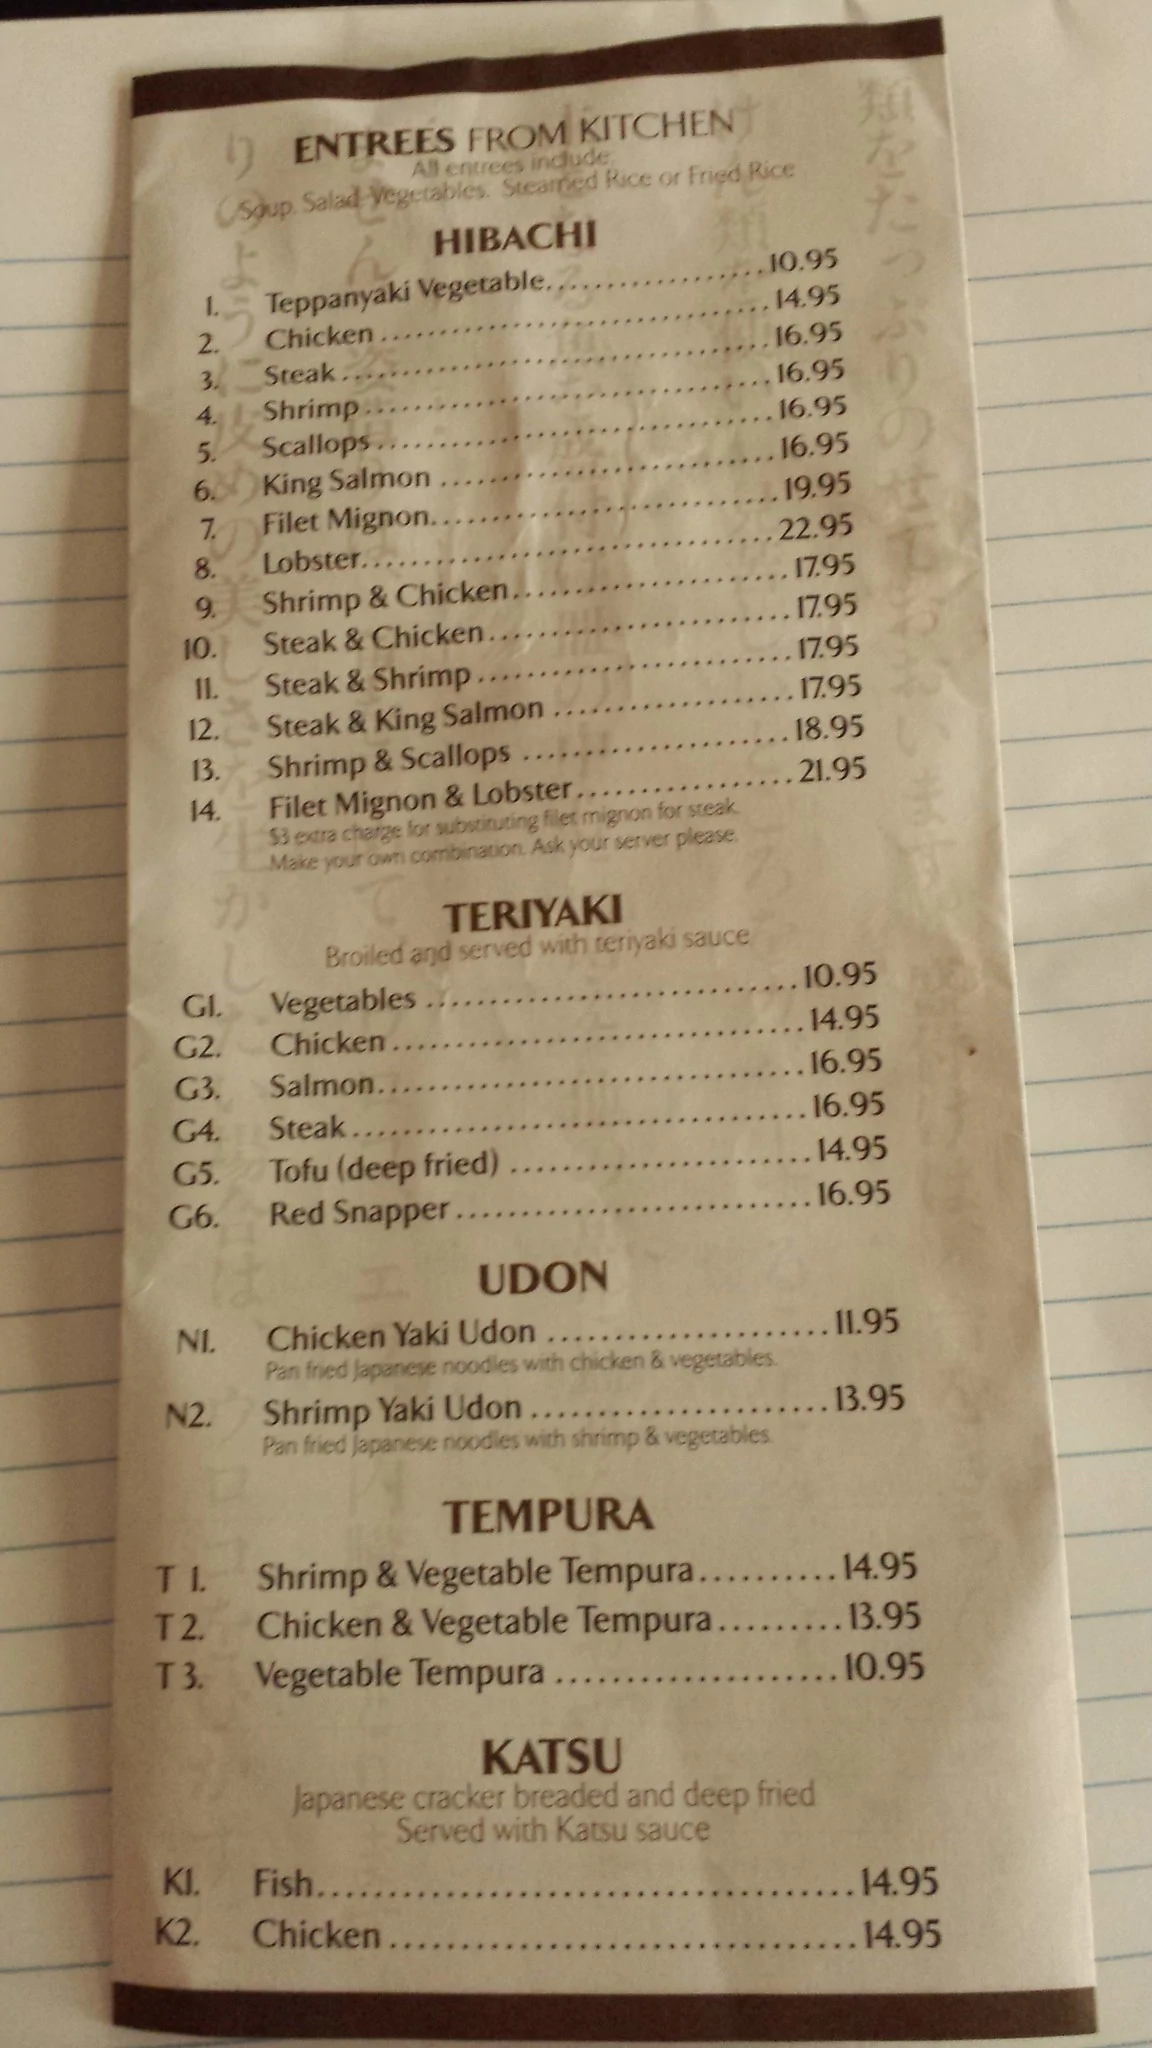 ENTREES FROM KITCHEN
All entrees include:
Soup, Salad, Vegetables, Steamed Rice or Fried Rice
HIBACHI
1. Teppanyaki Vegetable....................10.95
2. Chicken....................14.95
3. Steak....................16.95
4. Shrimp....................16.95
5. Scallops....................16.95
6. King Salmon....................16.95
7. Filet Mignon....................19.95
8. Lobster....................22.95
9. Shrimp & Chicken....................17.95
10. Steak & Chicken....................17.95
11. Steak & Shrimp....................17.95
12. Steak & King Salmon....................17.95
13. Shrimp & Scallops....................18.95
14. Filet Mignon & Lobster....................21.95
$3 extra charge for substituting filet mignon for steak.
Make your own combination. Ask your server please.
TERIYAKI
Broiled and served with teriyaki sauce
G1. Vegetables....................10.95
G2. Chicken....................14.95
G3. Salmon....................16.95
G4. Steak....................16.95
G5. Tofu (deep fried)....................14.95
G6. Red Snapper....................16.95
UDON
N1. Chicken Yaki Udon....................11.95
Pan fried Japanese noodles with chicken & vegetables.
N2. Shrimp Yaki Udon....................13.95
Pan fried Japanese noodles with shrimp & vegetables.
TEMPURA
T 1. Shrimp & Vegetable Tempura..........14.95
T 2. Chicken & Vegetable Tempura.........13.95
T 3. Vegetable Tempura....................10.95
KATSU
Japanese cracker breaded and deep fried
Served with Katsu sauce
K1. Fish....................14.95
K2. Chicken....................14.95